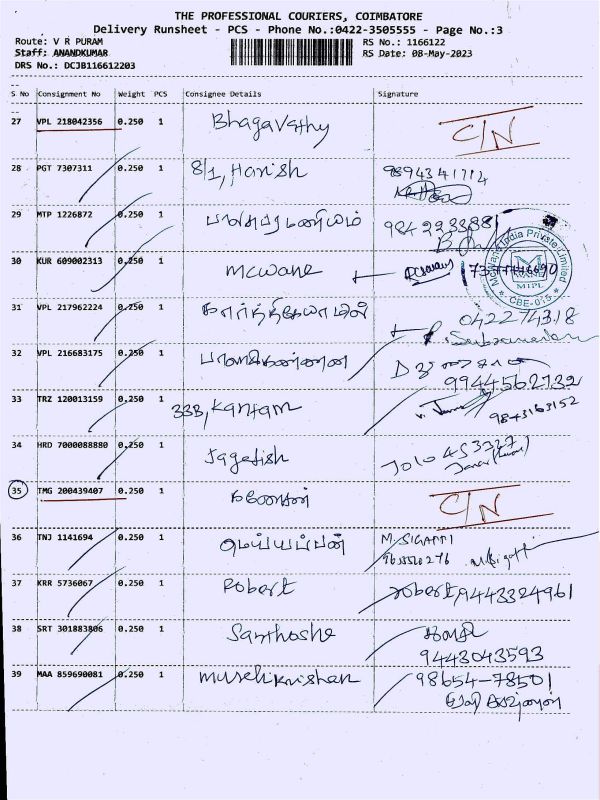 THE PROFESSIONAL COURIERS, COIMBATORE
Delivery Runsheet - PCS - Phone No.:0422-3505555 - Page No.:3
Route: V R PURAM
RS No.: 1166122
Staff: ANANDKUMAR
RS Date: 08-May-2023
DRS No.: DCJB116612203
S No Consignment No Weight PCS Consignee Details Signature
27 VPL 218042356 0.250 1 Bhagavathy C/N
28 PGT 7307311 0.250 1 8/1, Harish 9894341714
29 MTP 1226872 0.250 1 பாலசுப்ரமணியம்
30 KUR 609002313 0.250 1 mcwane
McWane India Private Limited
MIPL
CBE-015
31 VPL 217962224 0.250 1 கார்த்திகேயாயினி
0422 74318
32 VPL 216683175 0.250 1
9944562732
33 TRZ 120013159 0.250 1 33B,
9843163152
34 HRD 7000088880 0.250 1 Jagatish
35 TMG 200439407 0.250 1 கணேசன் C/N
36 TNJ 1141694 0.250 1 மெய்யப்பன் M. SIGAPPI
37 KRR 5736067 0.250 1 Robert robert, 9443324961
38 SRT 301883806 0.250 1 Santhoshe
9443043593
39 MAA 859690081 0.250 1 muralikrishnan 98654-78501